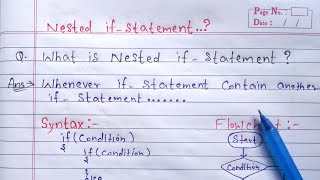 Nested if-statement..?
Page No.:
Date: / /
Q. What is Nested if-Statement?
Ans:→ Whenever if-Statement Contain another
if-Statement.......
Syntax:-
if(Condition)
{
if(Condition)
{
else
Flowchart:-
Start
Condition